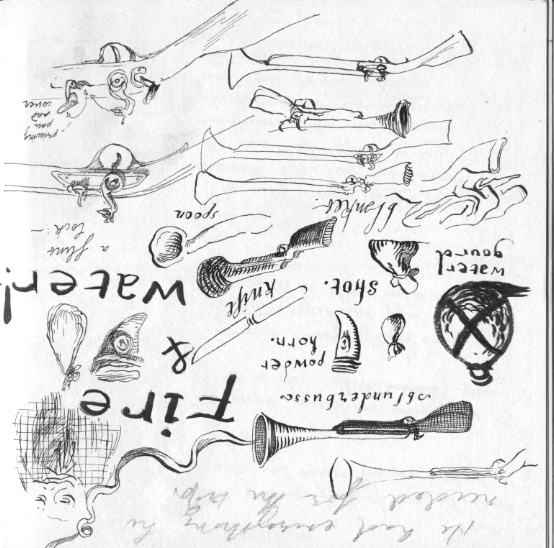 He had everything he
needed for the trip.
blunderbuss
Fire
&
water!
powder
horn.
knife
shot.
water
gourd
spoon
blanket
a flint
lock:-
priming
pan
and
cover